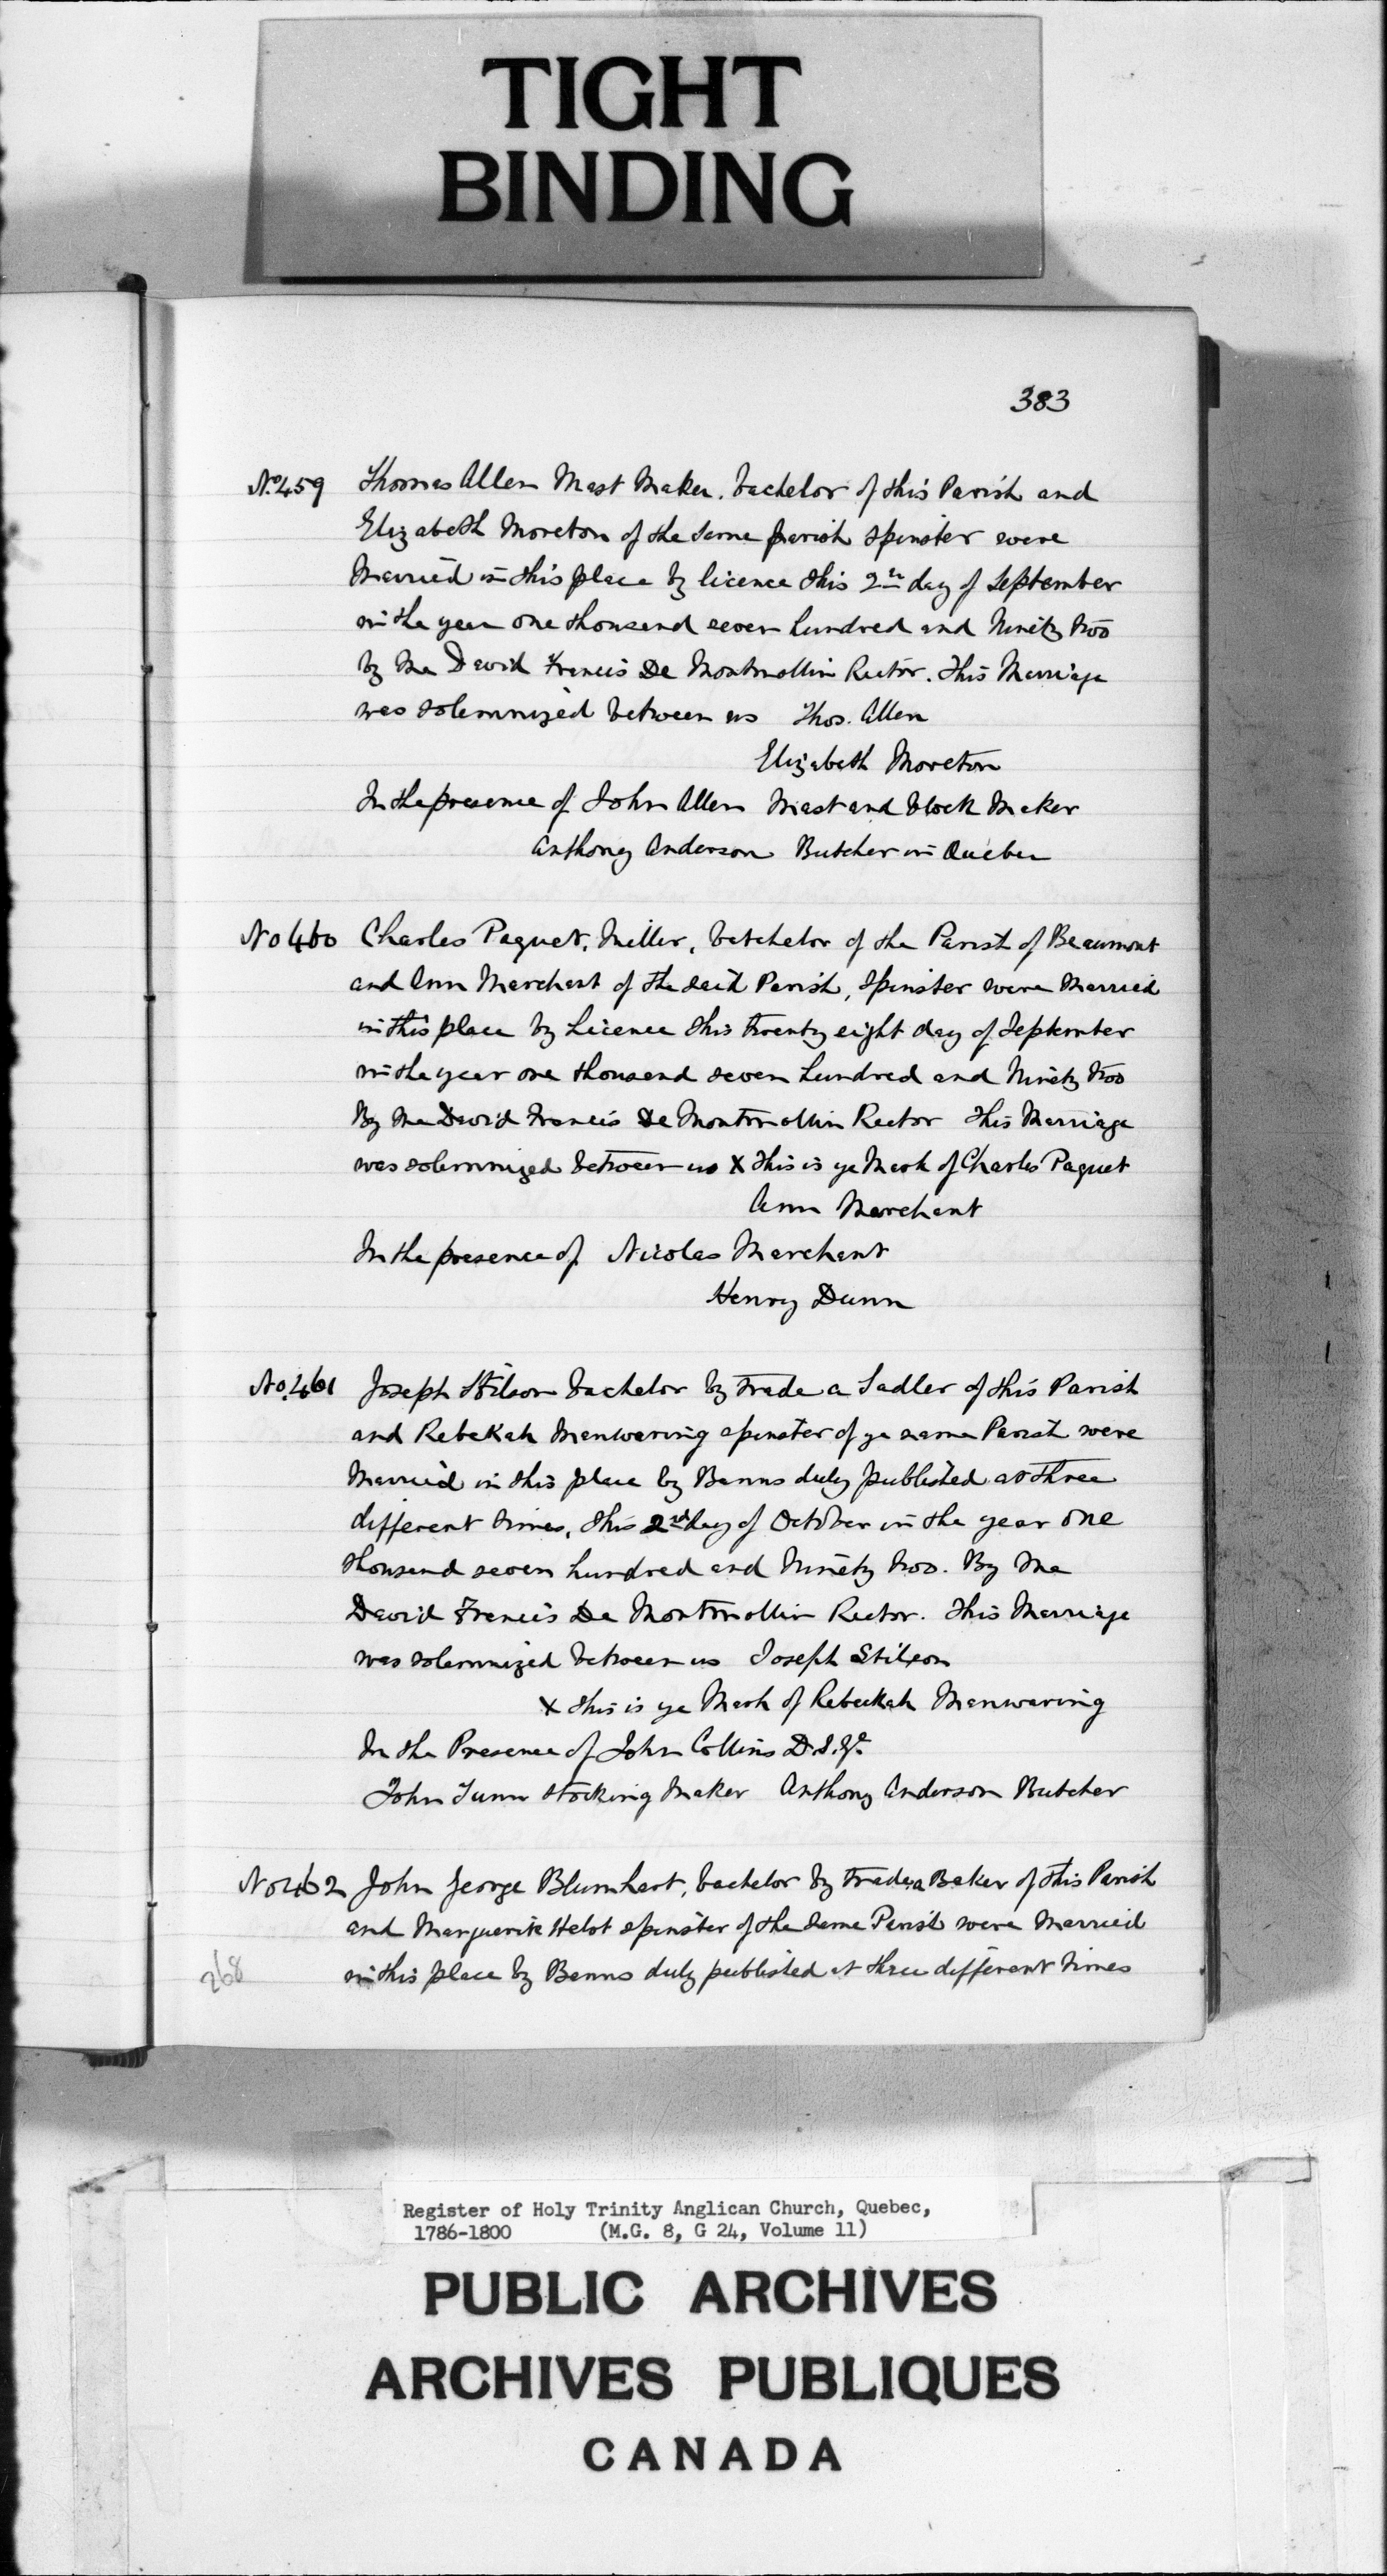 TIGHT
BINDING
383
No. 459 Thomas Allen Mast Maker. bachelor of this Parish and
Elizabeth Moreton of the same parish spinster were
Married in this place by licence this 2n day of September
in the year one thousand seven hundred and Ninety two
by me David Francis De Montmollin Rector. This Marriage
was solemnized between us Thos. Allen
Elizabeth Moreton
In the presence of John Allen Mast and block Maker
Anthony Anderson Butcher in Quebec
No 460 Charles Paquet, Miller, batchelor of the Parish of Beaumont
and Ann Marchant of the said Parish, spinster were Married
in this place by Licence this twenty eight day of September
in the year one thousand seven hundred and Ninety two
By me David Francis De Montmollin Rector This Marriage
was solemnized between us X this is ye Mark of Charles Paquet
Ann Marchant
In the presence of Nicolas Marchant
Henry Dunn
No. 461 Joseph Stilson bachelor by trade a Sadler of this Parish
and Rebekah Manwaring spinster of ye same Parish were
Married in this place by Banns duly published at three
different times, this 2nd day of October in the year one
thousand seven hundred and Ninety two. By me
David Francis De Montmollin Rector. This Marriage
was solemnized between us Joseph Stilson
X this is ye Mark of Rebeckah Manwaring
In the Presence of John Collins
John Tunn stocking Maker Anthony Anderson Butcher
No 462 John George Blumhart, bachelor by trade a Baker of this Parish
and Marguerite Helot spinster of the same Parish were Married
in this place by Banns duly published at three different times
268
Register of Holy Trinity Anglican Church, Quebec,
1786-1800 (M.G. 8, G 24, Volume 11)
PUBLIC ARCHIVES
ARCHIVES PUBLIQUES
CANADA